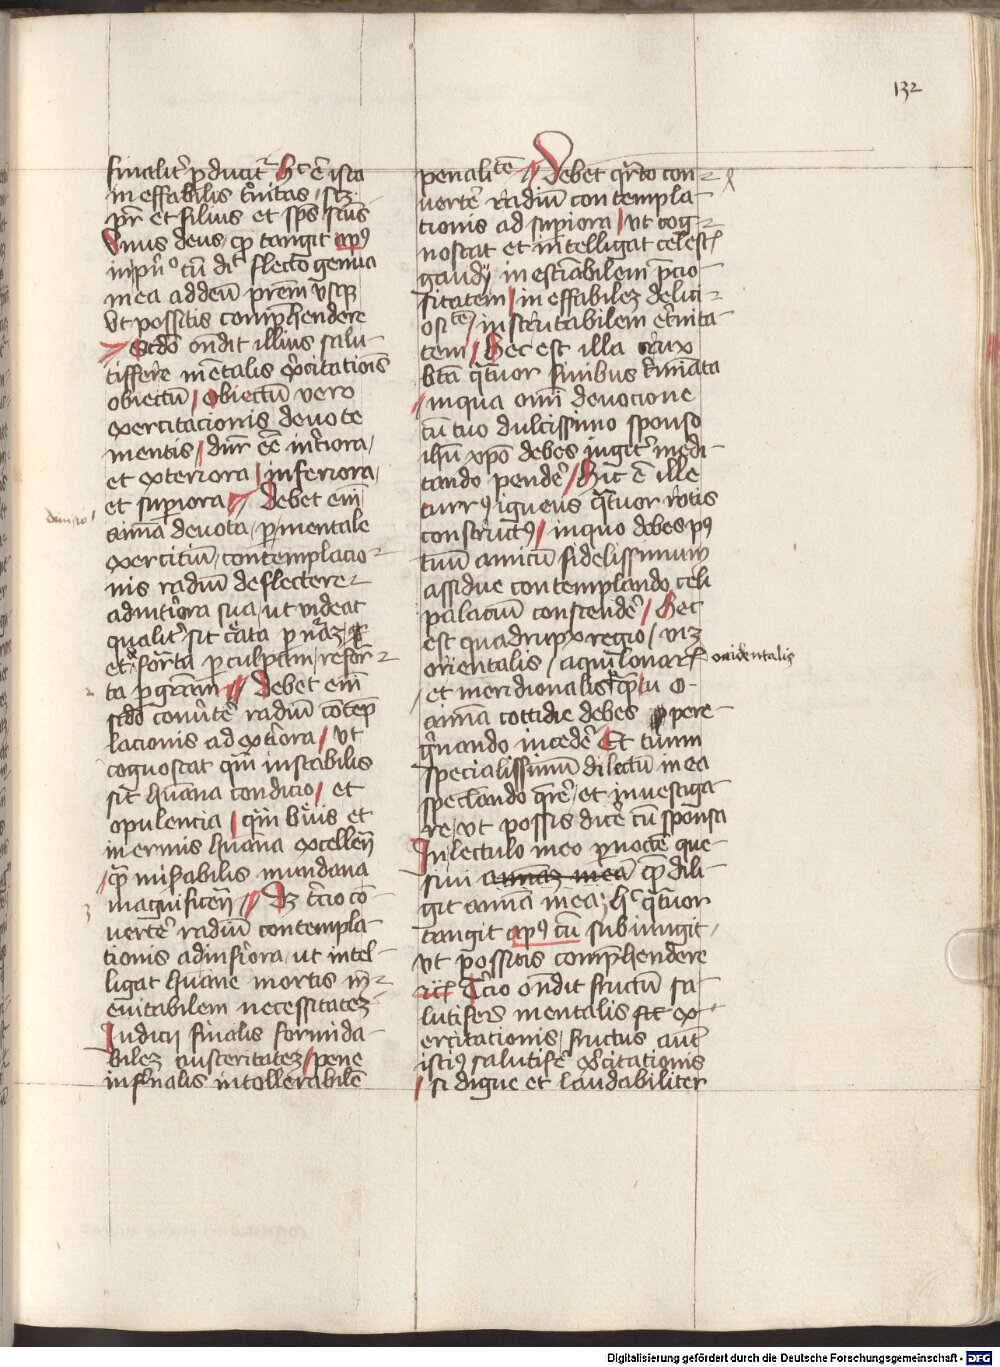 132
finalit᷑ ꝑducit᷑ hͨ ē ista
ineffabilis t᷑nitas / scꝫ
pr̄ et filius et sp̄s scūs
Vnus deus / qͥ tangit apꝰ
in pn̄ᵒ cū dīt flecto genua
mea ad deū prēm vsqꝫ
Vt possitis comp̄hendere
Scdō ondit illius salu-
tiffere mētalis ex̄citatiōis
obiectū / Obiectū vero
exercitacionis deuote
mentis / dn̄r eē int᷑iora /
et exteriora / inferiora /
et sup̄iora // Debet em̄
aīma deuota / ꝑ mentale
exercitiū / contemplacio-
nis radiū deflectere
ad int᷑iora sua / ut videat
qualit᷑ sit c᷑ata ꝑ nāꝫ
et deformᷓta ꝑ culpam / refor-
ta ꝑ grām // Debet em̄
scdō conu᷑te᷑ radiū cōtēp
lacionis ad ext᷑iora / vt
cognoscat qm̄ instabilis
sit hūana condicio / et
opulencia / qm̄ b᷑uis et
inermis hūana excellen̄
qͣ mis᷑abilis mundana
magnificen̄ // Dꝫ t᷑cio cō-
uerte᷑ radiū contempla-
tionis ad inf᷑iora / ut intel-
ligat hūane mortis in-
euitabilem necessitateꝫ
Iudicij finalis formida-
bileꝫ austeritateꝫ / pene
inf᷑nalis intollerabilē
penalitᵗᵉ // Debet qͣrto con-
uerte᷑ radiū contempla-
tionis ad sup̄iora / vt cog-
noscat et intelligat celest᷑
gaudij inestiabilem p̄cio-
sitatem / ineffabileꝫ delici-
ositᵗᵉ / inscrutabilem et᷑nita-
tem / Hec est illa crux
btā qͣtuor finibus t᷑mīata
/ in qua omī deuocione
cū tuo dulcissimo sponso
ihū xpō debes iugit᷑ medi-
tando pende᷑ / Hic ē ille
currꝰ igneus qͣtuor rotis
constructꝰ / in quo debes pꝰ
tuū amicū fidelissimum
assidue contemplando celi
palaciū conscende᷑ / Hec
est quadruplex regio / viꝫ
orientalis / aquilonar᷑ occidentalis
/ et meridionalis / qͣ tu o
aīma cottidie debes pere-
g᷑nando incede᷑ Et tuum
specialissimū dilectū in ea
speclando qr̄e᷑ / et inuestiga
re / vt possis dice᷑ cū sponsa
In lectulo meo ꝑ noctē que-
siui animā meā qͥ dili-
git aīma mea / hͨ qͣtuor
tangit apꝰ cū subiungit /
Vt possitis comp̄hendere
rcͤ T᷑cio ondit fructū sa-
lutiferi mentalis ex-
ercitationis / fructus aut̄
istiꝰ salutife᷑ ex᷑citationis
/ si digne et laudabiliter